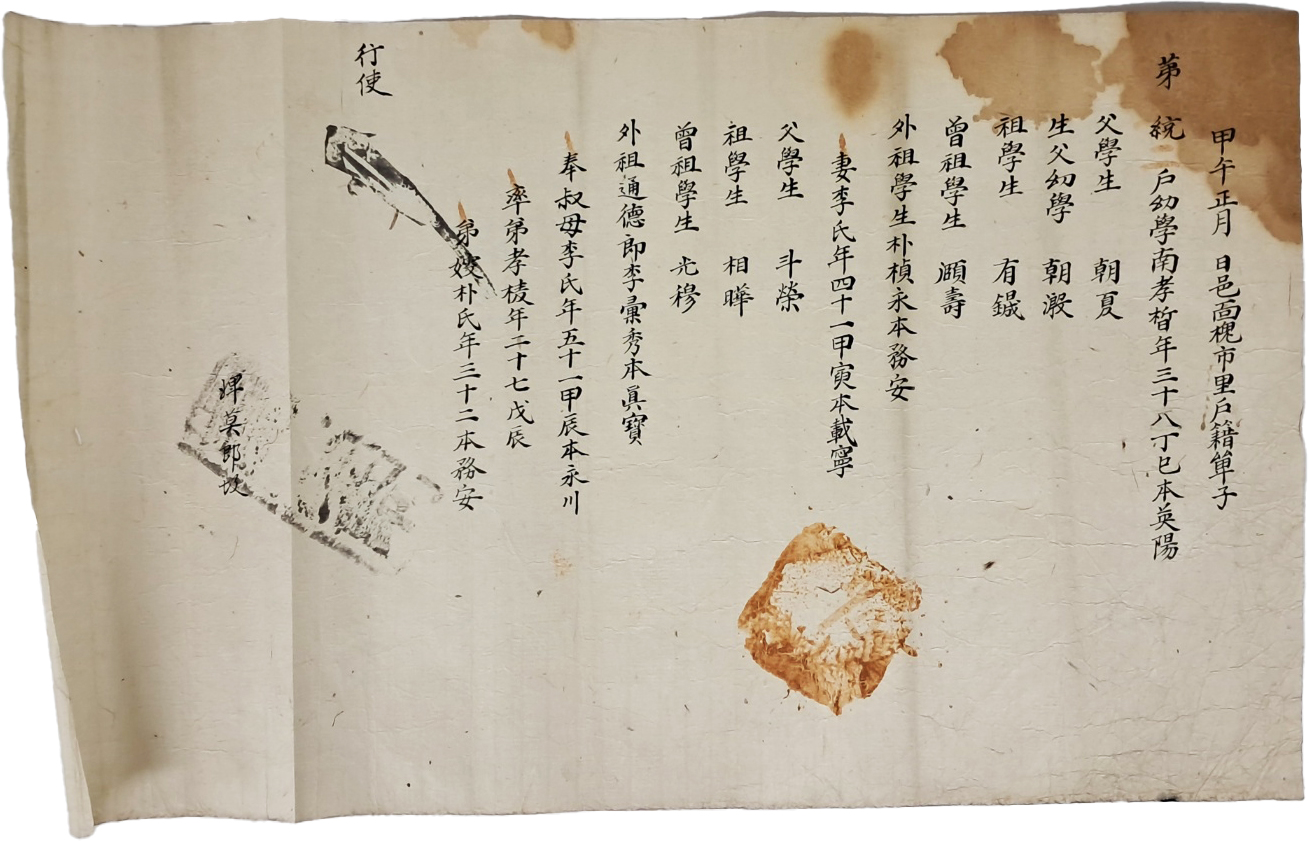 甲午正月 日邑面槐市里戶籍單子
第 統 戶幼學南孝 年三十八丁巳本英陽
父學生 朝夏
生父幼學 朝瀫
祖學生 有鑶
曾祖學生 灝壽
外祖學生朴楨永本務安
妻李氏年四十一甲寅本載寧
父學生 斗榮
祖學生 相曄
曾祖學生 光穆
外祖通德郎李彙秀本眞寶
奉叔母李氏年五十一甲辰本永川
率弟孝稜年二十七戊辰
弟嫂朴氏年三十二本務安
行使
婢莫郎